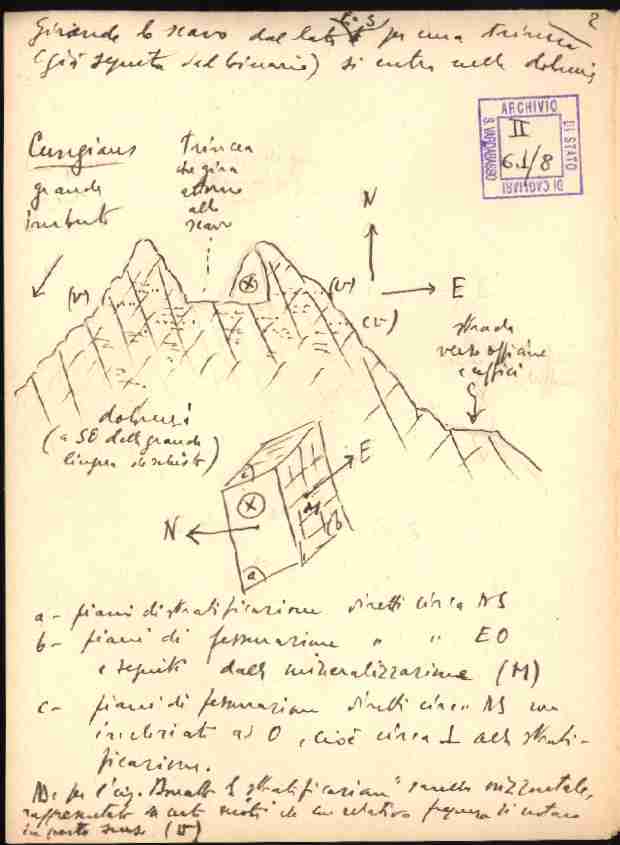 2
Girando lo scavo dal lato E-S per una trincea
(già seguita dal binario) si entra nelle dolomie
ARCHIVIO
DI STATO
DI CAGLIARI
II
6.1/8
Cungiaus
grande
imbuto
trincea
che gira
attorno
allo
scavo
N
E
(v)
(v)
(v)
X
strada
verso officine
e uffici
dolomia
(a SE della grande
lingua di schisto)
c
X
N
E
M
(b)
a
a - piani di stratificazione diretti circa NS
b - piani di fessurazione " " EO
e seguiti dalla mineralizzazione (M)
c - piani di fessurazione diretti circa NS ma
inclinati ad O, cioè circa ⊥ alla strati-
ficazione.
NB: per l'ing. la "stratificazione" sarebbe orizzontale,
rappresentata da certi che con relativa frequenza si notano
in questo senso (v)